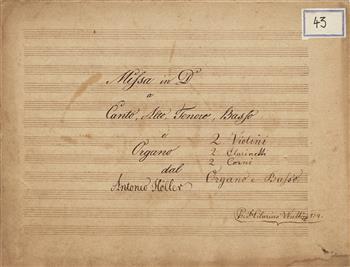 43
Missa in D
a
Canto, Alto, Tenore, Basso
e
Organo
2 Violini
2 Clarinetti
2 Corni
dal
Organo e Basso
Antonio Höller